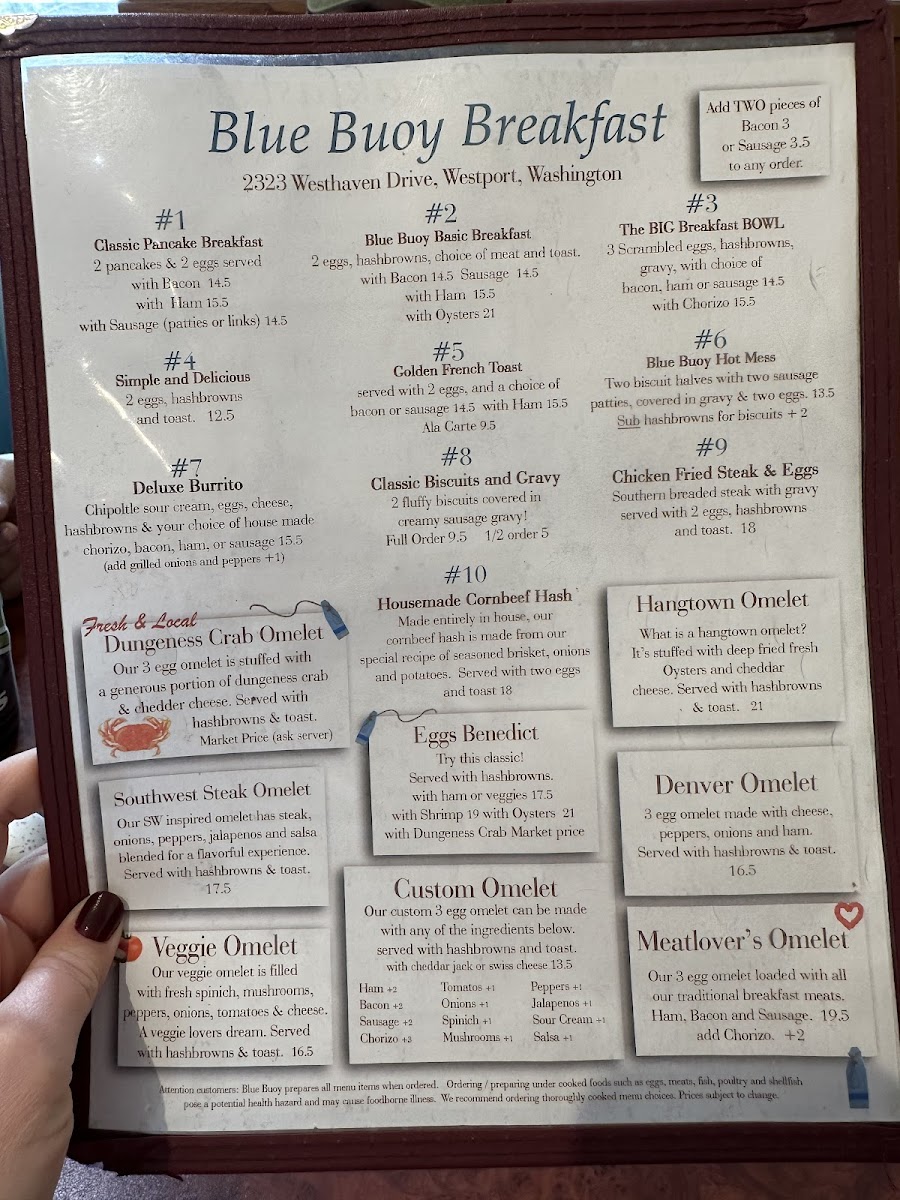 Blue Buoy Breakfast
2323 Westhaven Drive, Westport, Washington
Add TWO pieces of
Bacon 3
or Sausage 3.5
to any order.
#1
Classic Pancake Breakfast
2 pancakes & 2 eggs served
with Bacon 14.5
with Ham 15.5
with Sausage (patties or links) 14.5
#2
Blue Buoy Basic Breakfast
2 eggs, hashbrowns, choice of meat and toast.
with Bacon 14.5 Sausage 14.5
with Ham 15.5
with Oysters 21
#3
The BIG Breakfast BOWL
3 Scrambled eggs, hashbrowns,
gravy, with choice of
bacon, ham or sausage 14.5
with Chorizo 15.5
#4
Simple and Delicious
2 eggs, hashbrowns
and toast. 12.5
#5
Golden French Toast
served with 2 eggs, and a choice of
bacon or sausage 14.5 with Ham 15.5
Ala Carte 9.5
#6
Blue Buoy Hot Mess
Two biscuit halves with two sausage
patties, covered in gravy & two eggs. 13.5
Sub hashbrowns for biscuits + 2
#7
Deluxe Burrito
Chipoltle sour cream, eggs, cheese,
hashbrowns & your choice of house made
chorizo, bacon, ham, or sausage 15.5
(add grilled onions and peppers +1)
#8
Classic Biscuits and Gravy
2 fluffy biscuits covered in
creamy sausage gravy!
Full Order 9.5 1/2 order 5
#9
Chicken Fried Steak & Eggs
Southern breaded steak with gravy
served with 2 eggs, hashbrowns
and toast. 18
#10
Housemade Cornbeef Hash
Made entirely in house, our
cornbeef hash is made from our
special recipe of seasoned brisket, onions
and potatoes. Served with two eggs
and toast 18
Fresh & Local
Dungeness Crab Omelet
Our 3 egg omelet is stuffed with
a generous portion of dungeness crab
& chedder cheese. Served with
hashbrowns & toast.
Market Price (ask server)
Hangtown Omelet
What is a hangtown omelet?
It's stuffed with deep fried fresh
Oysters and cheddar
cheese. Served with hashbrowns
& toast. 21
Eggs Benedict
Try this classic!
Served with hashbrowns.
with ham or veggies 17.5
with Shrimp 19 with Oysters 21
with Dungeness Crab Market price
Southwest Steak Omelet
Our SW inspired omelet has steak,
onions, peppers, jalapenos and salsa
blended for a flavorful experience.
Served with hashbrowns & toast.
17.5
Denver Omelet
3 egg omelet made with cheese,
peppers, onions and ham.
Served with hashbrowns & toast.
16.5
Custom Omelet
Our custom 3 egg omelet can be made
with any of the ingredients below.
served with hashbrowns and toast.
with cheddar jack or swiss cheese 13.5
Ham +2 Tomatos +1 Peppers +1
Bacon +2 Onions +1 Jalapenos +1
Sausage +2 Spinich +1 Sour Cream +1
Chorizo +3 Mushrooms +1 Salsa +1
Veggie Omelet
Our veggie omelet is filled
with fresh spinich, mushrooms,
peppers, onions, tomatoes & cheese.
A veggie lovers dream. Served
with hashbrowns & toast. 16.5
Meatlover's Omelet
Our 3 egg omelet loaded with all
our traditional breakfast meats.
Ham, Bacon and Sausage. 19.5
add Chorizo. +2
Attention customers: Blue Buoy prepares all menu items when ordered. Ordering / preparing under cooked foods such as eggs, meats, fish, poultry and shellfish
pose a potential health hazard and may cause foodborne illness. We recommend ordering thoroughly cooked menu choices. Prices subject to change.